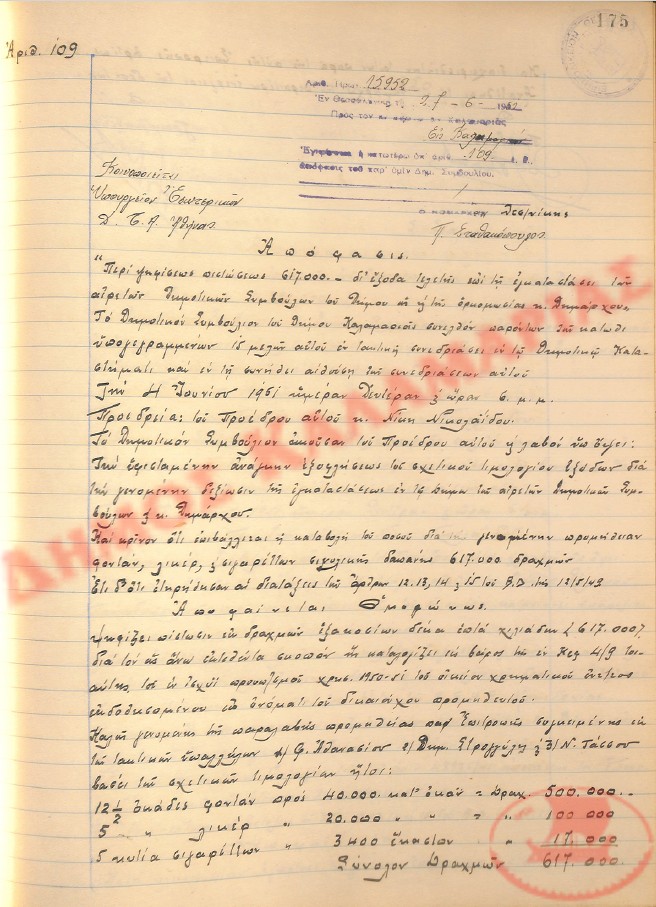 175
Αριθ. 109
Αριθ. Πρωτ. 15952
Ἐν Θεσσαλονίκῃ τῇ 27-6-1952
Πρὸς τὸν
Εἰς Καλαμαριάν
109
παρ' ὑμῖν Δημ. Συμβουλίου.
Κοινοποιεῖται
Ὑπουργεῖον Ἐσωτερικῶν
Δ. Τ. Α. Ἀθήνας
Ο ΝΟΜΑΡΧΗΣ Θεσ/νίκης
Π. Σταθακόπουλος
Ἀπόφασις.
"Περὶ ψηφίσεως πιστώσεως 617.000.- δι' ἔξοδα τελετῆς ἐπὶ τῇ ἐγκαταστάσει τῶν
αἱρετῶν Δημοτικῶν Συμβούλων τοῦ Δήμου ὡς ἡ τῆς ὁρκωμοσίας κ. Δημάρχου.
Τὸ Δημοτικὸν Συμβούλιον τοῦ Δήμου Καλαμαριᾶς συνελθὸν παρόντων τῶν κάτωθι
ὑπογεγραμμένων 15 μελῶν αὐτοῦ ἐν τακτικῇ συνεδριάσει ἐν τῷ Δημοτικῷ Κατα-
στήματι καὶ ἐν τῇ συνήθει αἰθούσῃ τῶν συνεδριάσεων αὐτοῦ
Τὴν 4 Ἰουνίου 1951 ἡμέραν Δευτέραν & ὥραν 6. μ. μ.
Προεδρεία: τοῦ Προέδρου αὐτοῦ κ. Νίκη Νικολαΐδου.
Τὸ Δημοτικὸν Συμβούλιον ἀκοῦσαν τοῦ Προέδρου αὐτοῦ & λαβὸν ὑπ' ὄψει:
Τὴν ὑφισταμένην ἀνάγκην ἐξοφλήσεως τοῦ σχετικοῦ τιμολογίου ἐξόδων διὰ
τὴν γενομένην δεξίωσιν τῆς ἐγκαταστάσεως ἐν τῷ Δήμῳ τῶν αἱρετῶν Δημοτικῶν Συμ-
βούλων & κ. Δημάρχου.
Καὶ κρῖνον ὅτι ἐπιβάλλεται ἡ καταβολὴ τοῦ ποσοῦ διὰ τὴν γενομένην προμήθειαν
φοντάν, λικέρ, & σιγαρέττων συνολικῆς δαπάνης 617.000 δραχμῶν
Ἔτι δ' ὅτι ἐτηρήθησαν αἱ διατάξεις τῶν ἄρθρων 12.13, 14 & 15 τοῦ Β.Δ. τῆς 12/5/49
Ἀποφαίνεται Ὁμοφώνως.
Ψηφίζει πίστωσιν ἐκ δραχμῶν ἑξακοσίων δέκα ἑπτὰ χιλιάδων (617.000)
διὰ τὸν ὡς ἄνω ἐκτεθέντα σκοπὸν ἣν καταλογίζει εἰς βάρος τῆς ἐν Κεφ 4/9 τοι-
αύτης τοῦ ἐν ἰσχύϊ προϋπ/σμοῦ χρήσ. 1950-51 τοῦ οἰκείου χρηματικοῦ ἐντ/τος
ἐκδοθησομένου ἐπ' ὀνόματι τοῦ δικαιούχου προμηθευτοῦ.
Καλῆς γενομένης τῆς παραλαβῆς προμηθείας παρ' Ἐπιτροπῆς συγκειμένης ἐκ
τῶν τακτικῶν ὑπαλλήλων 1/ Φ. Ἀθανασίου 2/ Δημ. Στρογγύλη & 3/ Ν. Τάσσου
βάσει τῶν σχετικῶν τιμολογίων ἤτοι:
12 1/2 ὀκάδες φοντὰν πρὸς 40.000 κατ' ὀκᾶν = Δραχ. 500.000.-
5 " λικέρ " 20.000 " " " " 100 000
5 κυτία σιγαρέττων " 3400 ἕκαστον " 17.000
Σύνολον Δραχμῶν 617 000.
ΔΗΜΟΣ ΚΑΛΑΜΑΡΙΑΣ